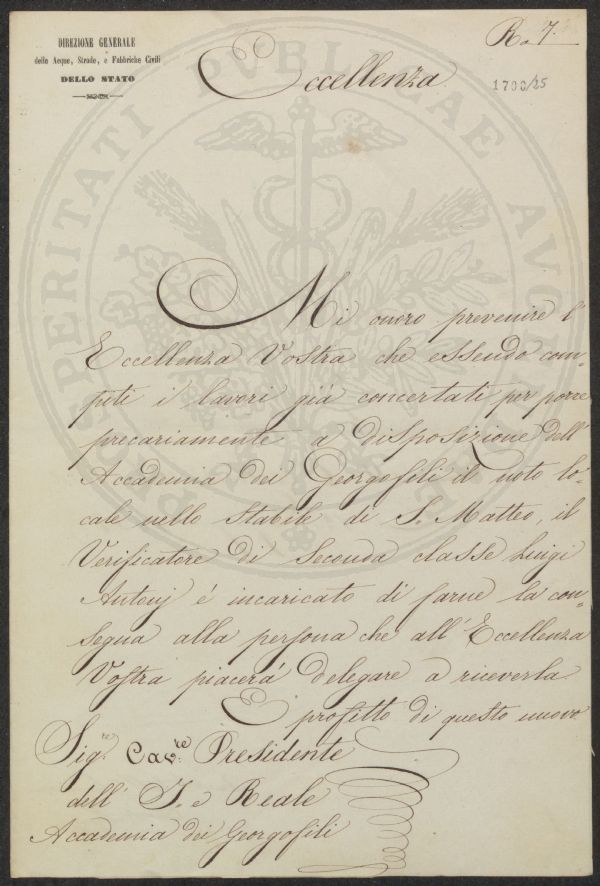 DIREZIONE GENERALE
delle Acque, Strade, e Fabbriche Civili
DELLO STATO
R.a 7.
Eccellenza.
1703/25
PROSPERITATI PVBLICAE AVGENDAE
Mi onoro prevenire l'
Eccellenza Vostra che essendo com=
piti i lavori già concertati per porre
precariamente a disposizione dell'
Accademia dei Georgofili il noto lo=
cale nello stabile di S. Matteo, il
Verificatore di Seconda classe Luigi
Antonj é incaricato di farne la con=
segna alla persona che all'Eccellenza
Vostra piacerá delegare a riceverla
E profitto di questo nuovo
Sig.re Cav.re Presidente
dell' I. e Reale
Accademia dei Georgofili